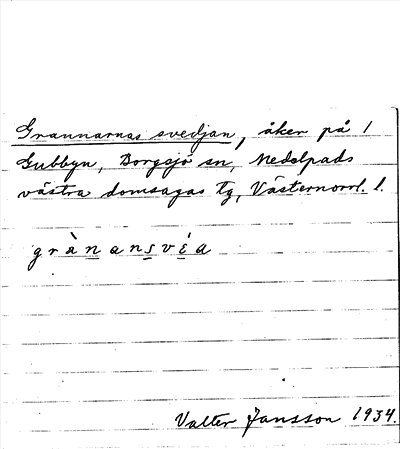 Grannarnas svedjan, åker på 1
Gubbyn, Borgsjö sn, Medelpads
västra domsagas tg, Västernorrl. l.
grànansvéa
Valter Jansson 1934.